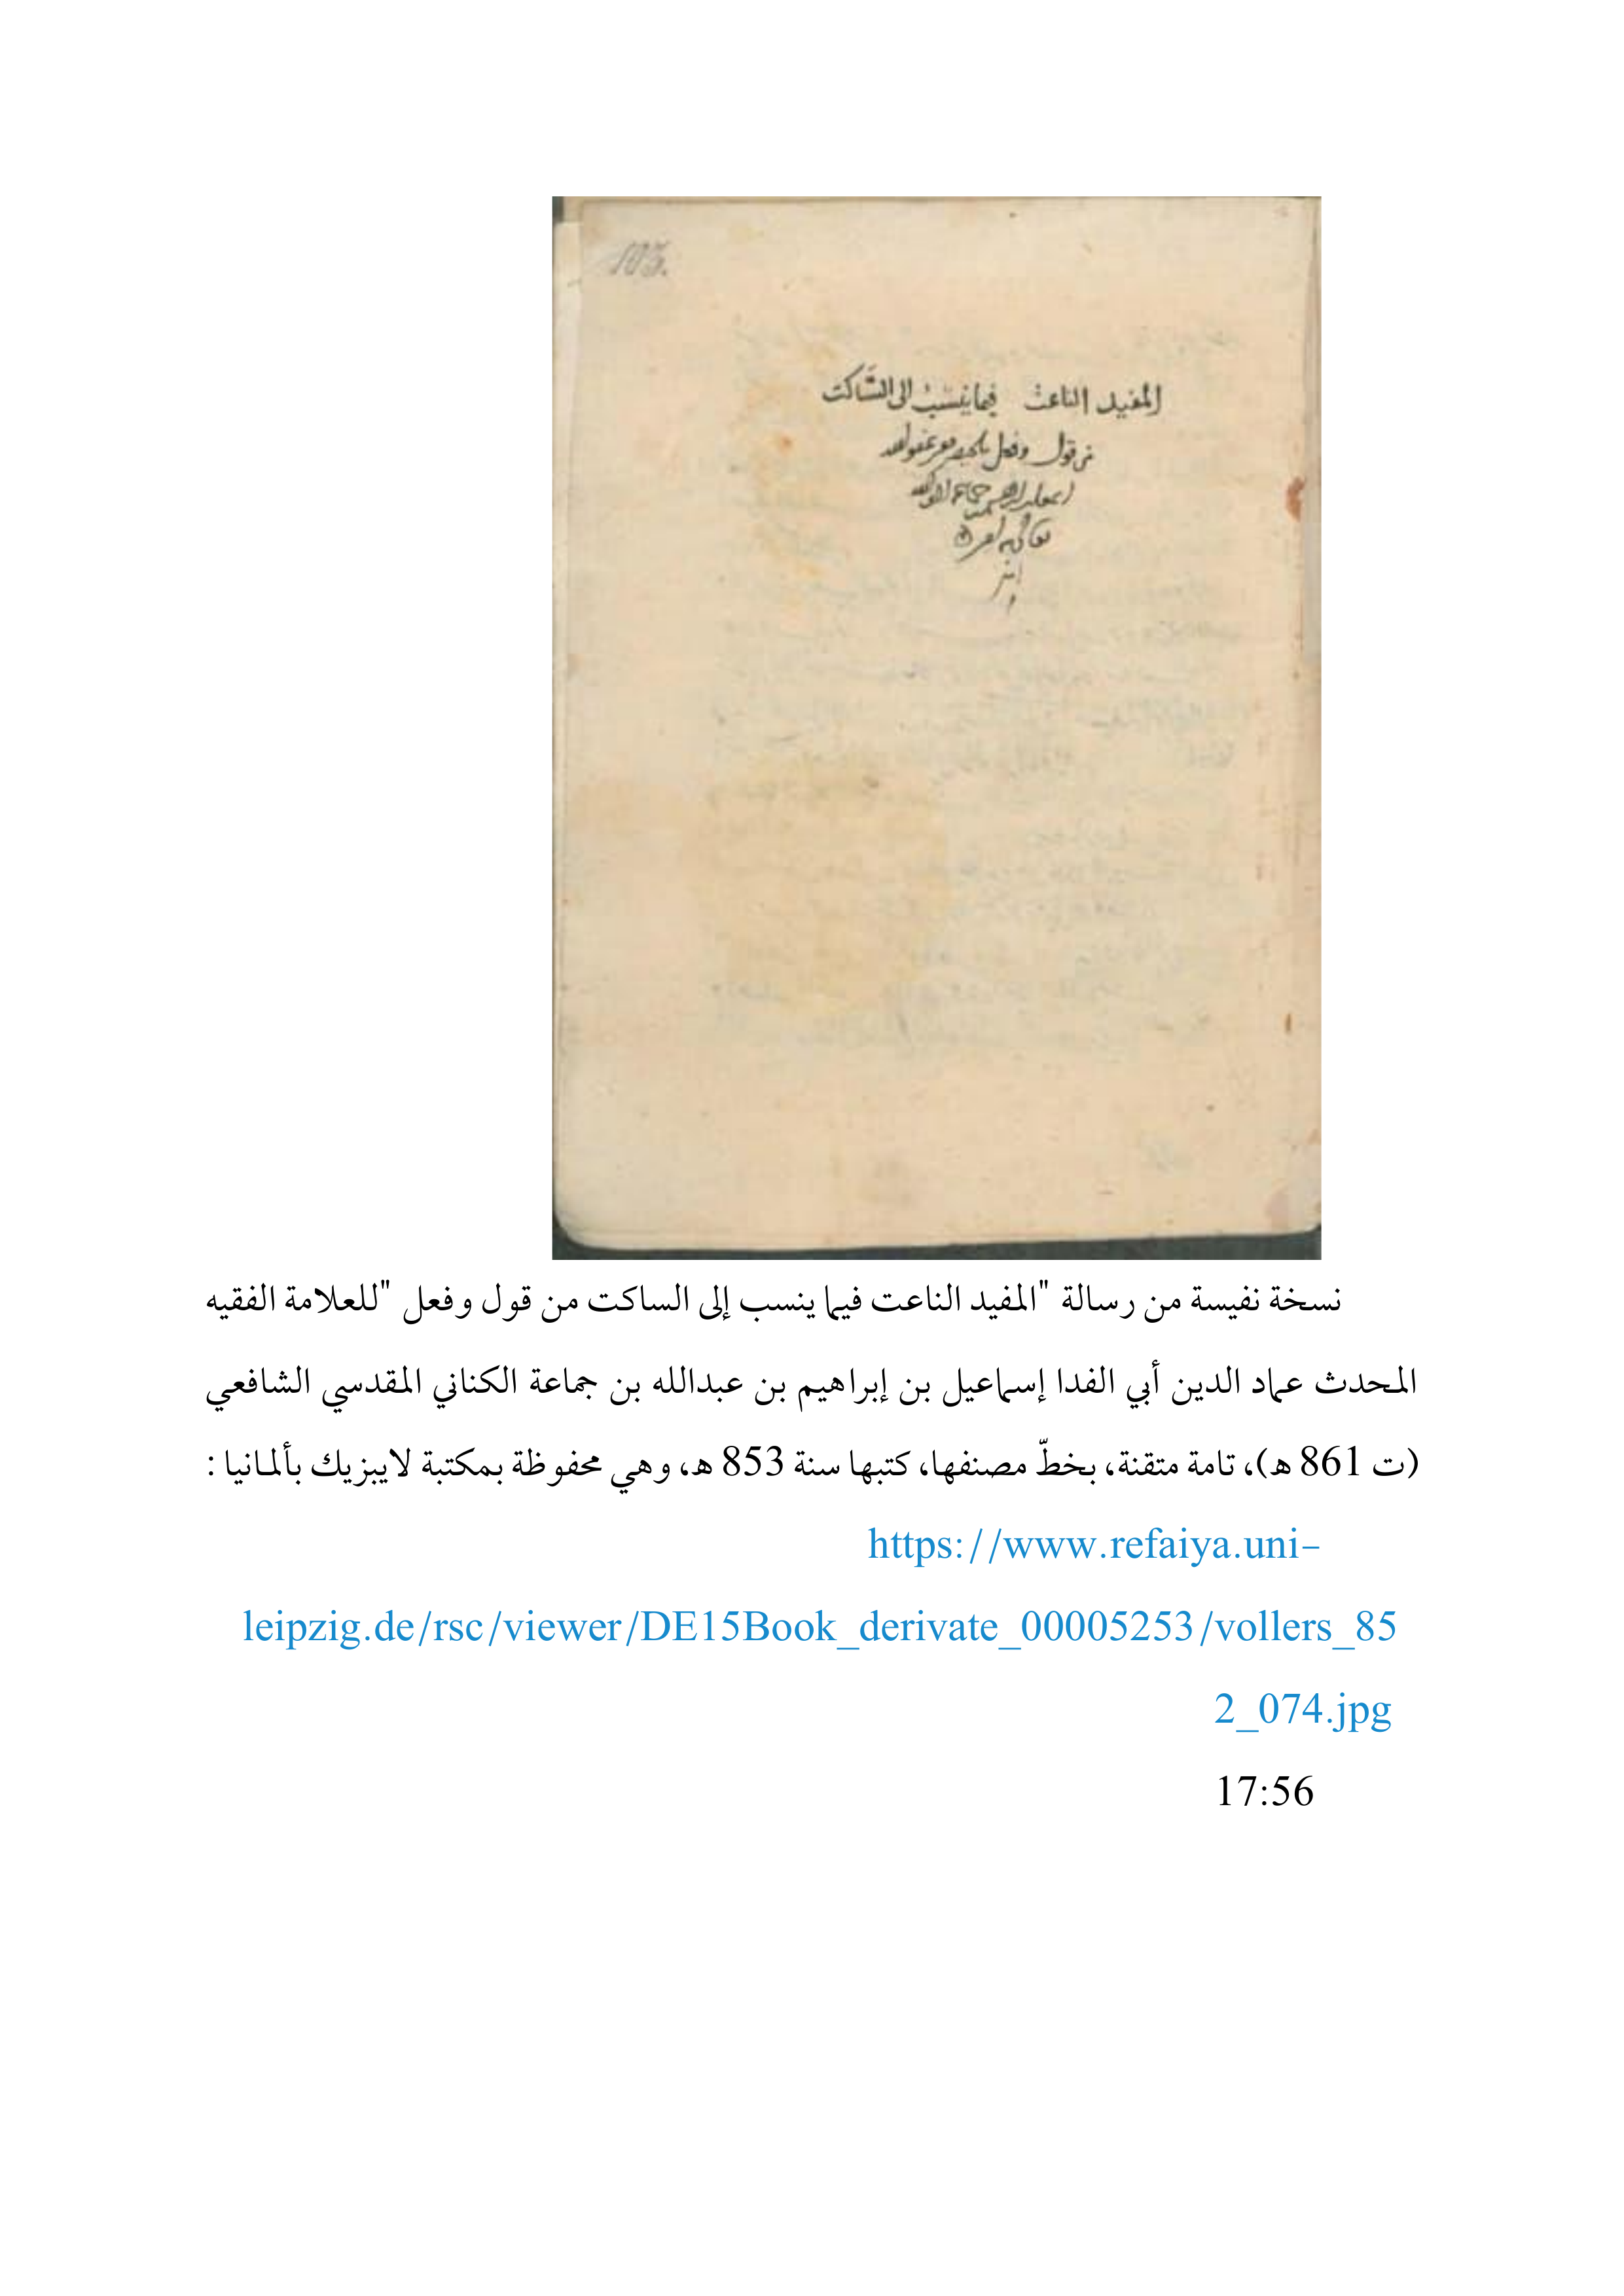 103.
المفيد الناعت فيما ينسب الى السَّاكت
من قول وفعل
نسخة نفيسة من رسالة "المفيد الناعت فيما ينسب إلى الساكت من قول وفعل "للعلامة الفقيه
المحدث عماد الدين أبي الفدا إسماعيل بن إبراهيم بن عبدالله بن جماعة الكناني المقدسي الشافعي
(ت 861 هـ)، تامة متقنة، بخطّ مصنفها، كتبها سنة 853 هـ، وهي محفوظة بمكتبة لايبزيك بألمانيا :
https://www.refaiya.uni-
leipzig.de/rsc/viewer/DE15Book_derivate_00005253/vollers_85
2_074.jpg
17:56